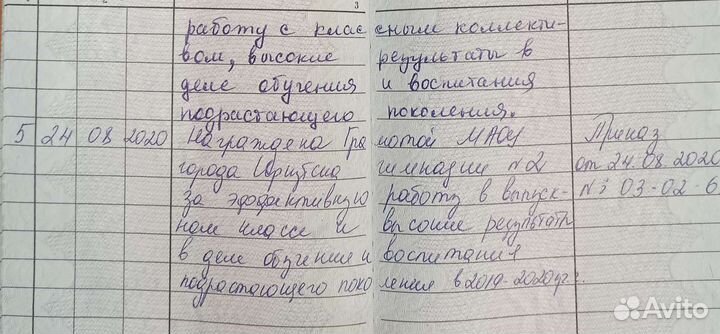 3
работу с классным коллекти-
вом, высокие результаты в
деле обучения и воспитания
подрастающего поколения.
5 24 08 2020 Награждена Грамотой МАОУ Приказ
города Иркутска гимназии №2 от 24.08.2020
за эффективную работу в выпуск- № 03-02-6
ном классе и высокие результаты
в деле обучения и воспитания
подрастающего поколения в 2019-2020уг.
Avito